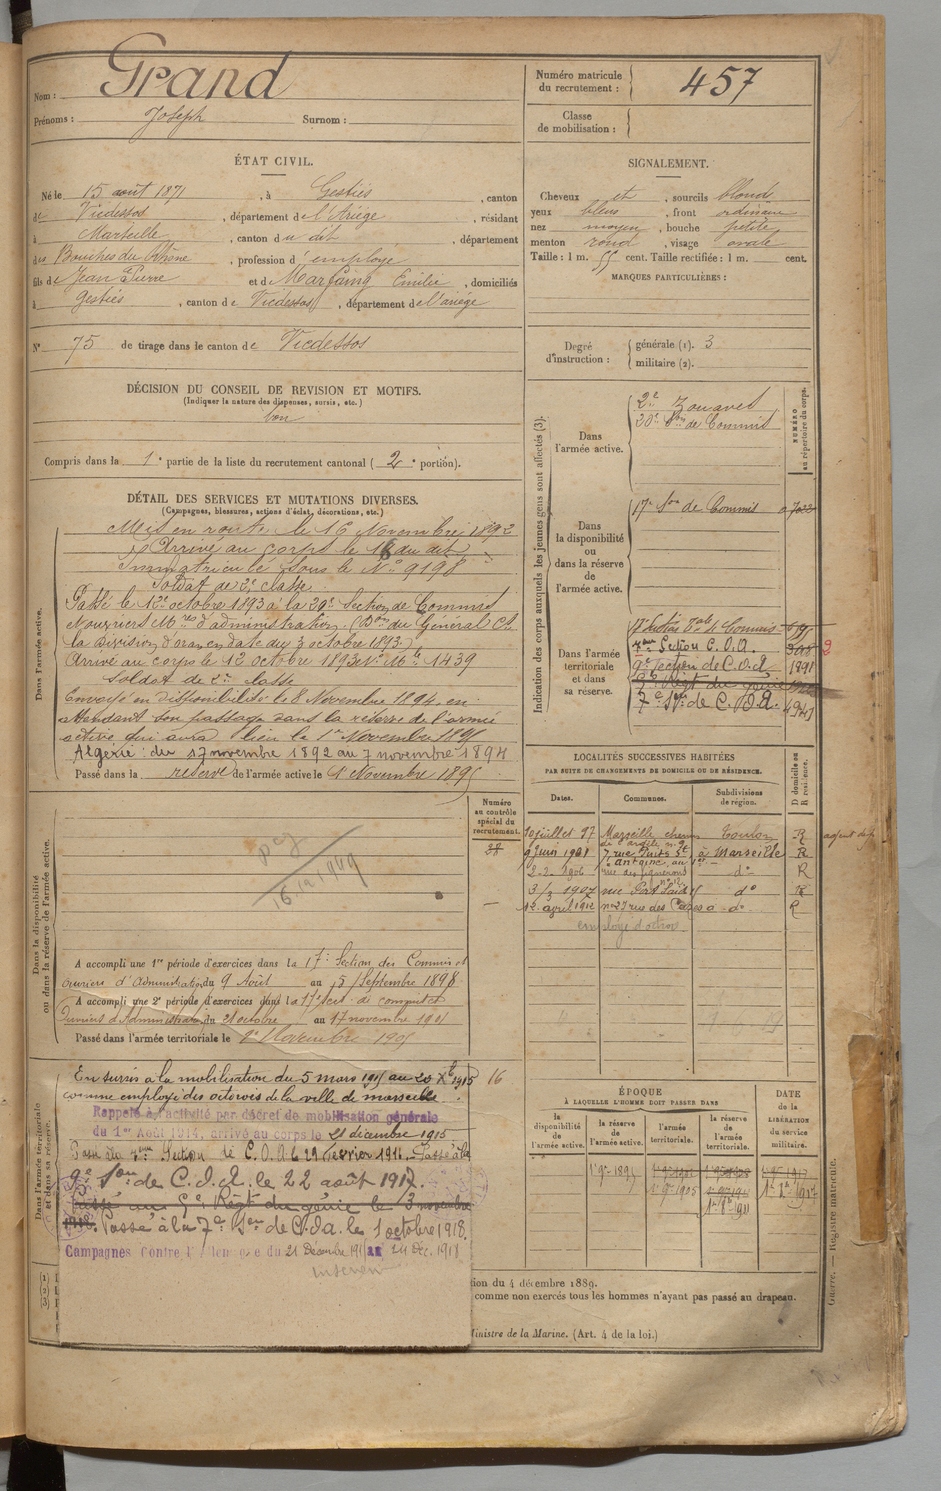 Nom : Grand
Prénoms : Joseph Surnom :
ÉTAT CIVIL.
Né le 15 août 1871, à Gestiès, canton
de Vicdessos, département de l'Ariège, résidant
à Marseille, canton du dit, département
des Bouches du Rhône, profession d'employé
fils de Jean Pierre et de Marfaing Emilie, domiciliés
à Gestiès, canton de Vicdessos, département de l'ariège
N° 75 de tirage dans le canton de Vicdessos
DÉCISION DU CONSEIL DE REVISION ET MOTIFS.
(Indiquer la nature des dispenses, sursis, etc.)
bon
Compris dans la 1e partie de la liste du recrutement cantonal (2e portion).
DÉTAIL DES SERVICES ET MUTATIONS DIVERSES.
(Campagnes, blessures, actions d'éclat, décorations, etc.)
Dans l'armée active.
Mis en route le 16 Novembre 1892
Arrivé au corps le 16 du dit
Immatriculé sous le N° 9198
Soldat de 2e classe
Passé le 12 octobre 1893 à la 20e Section de Commis
Ouvriers Mres d'administration. (Don du Général Ct
la division d'oran en date du 3 octobre 1893)
Arrivé au corps le 12 octobre 1893 N° Mle 1439
Soldat de 2e classe
Envoyé en disponibilité le 8 Novembre 1894, en
attendant son passage dans la réserve de l'armée
active qui aura lieu le 1er Novembre 1895
Algérie : du 17 novembre 1892 au 7 novembre 1894
Passé dans la réserve de l'armée active le 1 Novembre 1895
Dans la disponibilité
ou dans la réserve de l'armée active.
Numéro
au contrôle
spécial du
recrutement.
16.12.1949
A accompli une 1re période d'exercices dans la 17e Section des Commis et
ouvriers d'Administration du 9 Août au 5 Septembre 1898
A accompli une 2e période d'exercices dans la 17e sect. de commis et
Ouvriers d'Administration du 21 octobre au 17 novembre 1901
Passé dans l'armée territoriale le 1er Novembre 1905
Dans l'armée territoriale
et dans sa réserve.
En sursis à la mobilisation du 5 mars 1915 au 20 Xbre 1915 16
comme employé des octrois de la ville de marseille.
Rappelé à l'activité par décret de mobilisation générale
du 1er Août 1914, arrivé au corps le 21 décembre 1915
Passé à la
9e Son de C.O.A. le 22 août 1917.
Passé au 5e Régt du génie le 3 novembre
1918. Passé à la 7e Son de C.O.A. le 1 octobre 1918.
Campagnes contre l'Allemagne du 21 Décembre 1915 au 24 Déc. 1918
(1)
(2)
(3)
Numéro matricule
du recrutement : 457
Classe
de mobilisation :
SIGNALEMENT.
Cheveux et, sourcils blond
yeux bleus, front ordinaire
nez moyen, bouche petite
menton rond, visage ovale
Taille : 1 m. 55 cent. Taille rectifiée : 1 m. cent.
MARQUES PARTICULIÈRES :
Degré
d'instruction :
générale (1). 3
militaire (2).
Indication des corps auxquels les jeunes gens sont affectés (3).
NUMÉRO
au répertoire du corps.
Dans
l'armée active.
2e Zouaves
20e Son de Commis
Dans
la disponibilité
ou
dans la réserve
de
l'armée active.
17e Son de Commis
Dans l'armée
territoriale
et dans
sa réserve.
Section C.O.A.
9e Section de C.O.A. 1891
5e Régt du génie
7e Son de C.O.A.
LOCALITÉS SUCCESSIVES HABITÉES
PAR SUITE DE CHANGEMENTS DE DOMICILE OU DE RÉSIDENCE.
Dates. Communes. Subdivisions
de région. D domicile ou
R résidence.
10 juillet 97 Marseille, chemin Toulon R
9 Juin 1901 7 rue Puits St Antoine à Marseille R
2-2-1906 rue des figuerons d° R
3/2 1907 rue Port Saïd d° R
12 avril 1912 n° 27 rue des d° R
employé d'octroi
ÉPOQUE
À LAQUELLE L'HOMME DOIT PASSER DANS
la
disponibilité
de
l'armée active.
la réserve
de
l'armée active.
l'armée
territoriale.
la réserve
de
l'armée
territoriale.
DATE
de la
LIBÉRATION
du service
militaire.
1er 9bre 1895
1er 9bre 1905
tion du 4 décembre 1889.
comme non exercés tous les hommes n'ayant pas passé au drapeau.
Ministre de la Marine. (Art. 4 de la loi.)
Guerre. — Registre matricule.